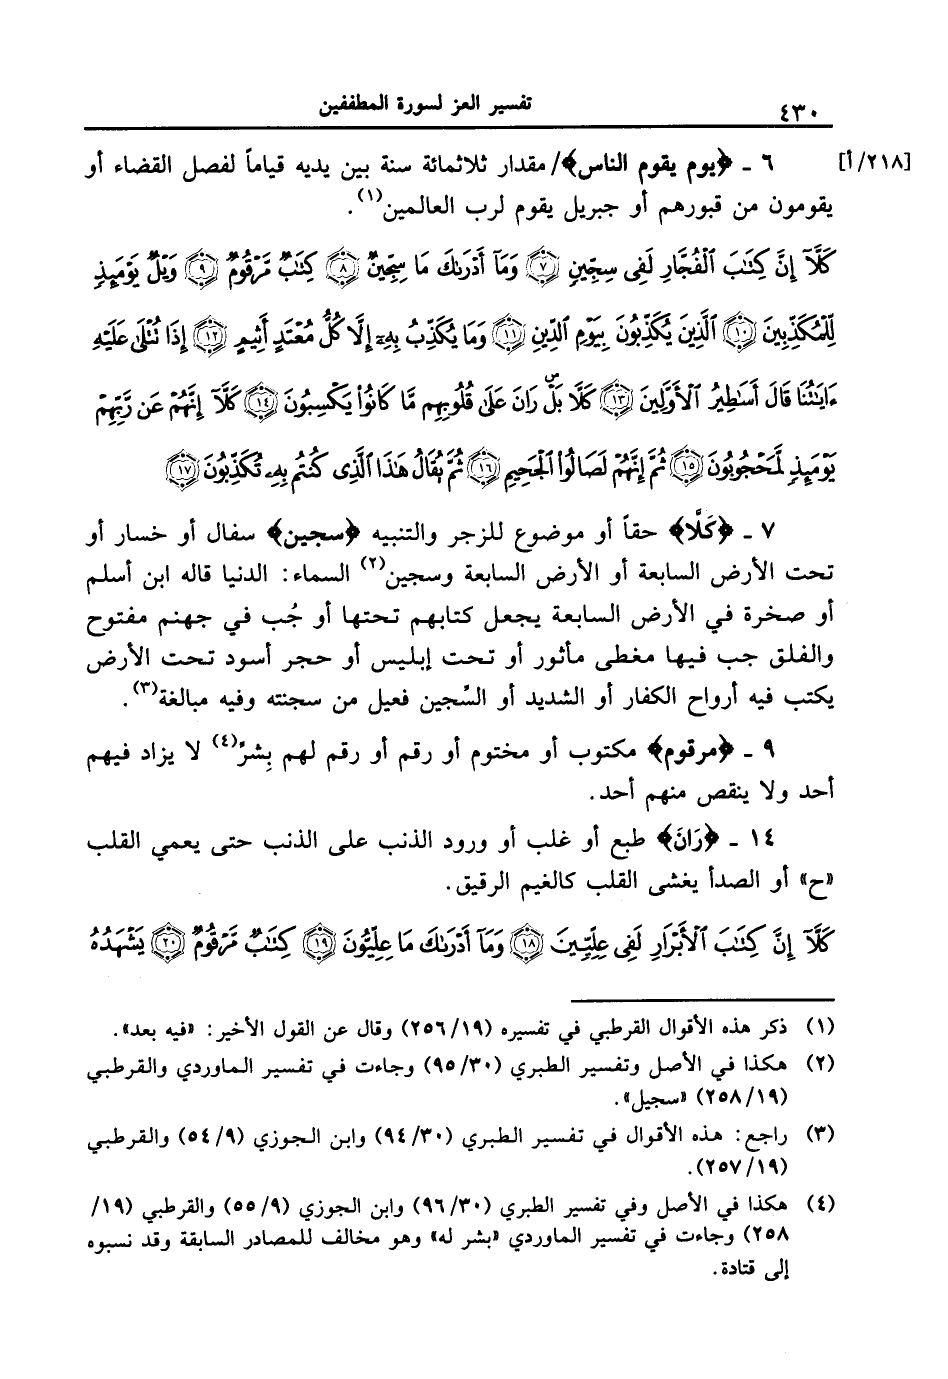 ٤٣٠ تفسير العز لسورة المطففين
[٢١٨/أ] ٦ ـ ﴿يوم يقوم الناس﴾/ مقدار ثلاثمائة سنة بين يديه قياماً لفصل القضاء أو
يقومون من قبورهم أو جبريل يقوم لرب العالمين(١).
كَلَّآ إِنَّ كِتَٰبَ ٱلْفُجَّارِ لَفِى سِجِّينٍ ﴿٧﴾ وَمَآ أَدْرَىٰكَ مَا سِجِّينٌ ﴿٨﴾ كِتَٰبٌ مَّرْقُومٌ ﴿٩﴾ وَيْلٌ يَوْمَئِذٍ
لِّلْمُكَذِّبِينَ ﴿١٠﴾ ٱلَّذِينَ يُكَذِّبُونَ بِيَوْمِ ٱلدِّينِ ﴿١١﴾ وَمَا يُكَذِّبُ بِهِۦٓ إِلَّا كُلُّ مُعْتَدٍ أَثِيمٍ ﴿١٢﴾ إِذَا تُتْلَىٰ عَلَيْهِ
ءَايَٰتُنَا قَالَ أَسَٰطِيرُ ٱلْأَوَّلِينَ ﴿١٣﴾ كَلَّا بَلْ ۜ رَانَ عَلَىٰ قُلُوبِهِم مَّا كَانُوا۟ يَكْسِبُونَ ﴿١٤﴾ كَلَّآ إِنَّهُمْ عَن رَّبِّهِمْ
يَوْمَئِذٍ لَّمَحْجُوبُونَ ﴿١٥﴾ ثُمَّ إِنَّهُمْ لَصَالُوا۟ ٱلْجَحِيمِ ﴿١٦﴾ ثُمَّ يُقَالُ هَٰذَا ٱلَّذِى كُنتُم بِهِۦ تُكَذِّبُونَ ﴿١٧﴾
٧ ـ ﴿كَلَّا﴾ حقاً أو موضوع للزجر والتنبيه ﴿سجين﴾ سفال أو خسار أو
تحت الأرض السابعة أو الأرض السابعة وسجين(٢) السماء: الدنيا قاله ابن أسلم
أو صخرة في الأرض السابعة يجعل كتابهم تحتها أو جُب في جهنم مفتوح
والفلق جب فيها مغطى مأثور أو تحت إبليس أو حجر أسود تحت الأرض
يكتب فيه أرواح الكفار أو الشديد أو السِّجين فعيل من سجنته وفيه مبالغة(٣).
٩ ـ ﴿مرقوم﴾ مكتوب أو مختوم أو رقم أو رقم لهم بِشرٍّ(٤) لا يزاد فيهم
أحد ولا ينقص منهم أحد.
١٤ ـ ﴿رَانَ﴾ طبع أو غلب أو ورود الذنب على الذنب حتى يعمي القلب
«ح» أو الصدأ يغشى القلب كالغيم الرقيق.
كَلَّآ إِنَّ كِتَٰبَ ٱلْأَبْرَارِ لَفِى عِلِّيِّينَ ﴿١٨﴾ وَمَآ أَدْرَىٰكَ مَا عِلِّيُّونَ ﴿١٩﴾ كِتَٰبٌ مَّرْقُومٌ ﴿٢٠﴾ يَشْهَدُهُ
(١) ذكر هذه الأقوال القرطبي في تفسيره (٢٥٦/١٩) وقال عن القول الأخير: «فيه بعد».
(٢) هكذا في الأصل وتفسير الطبري (٩٥/٣٠) وجاءت في تفسير الماوردي والقرطبي
(٢٥٨/١٩) «سجيل».
(٣) راجع: هذه الأقوال في تفسير الطبري (٩٤/٣٠) وابن الجوزي (٥٤/٩) والقرطبي
(٢٥٧/١٩).
(٤) هكذا في الأصل وفي تفسير الطبري (٩٦/٣٠) وابن الجوزي (٥٥/٩) والقرطبي (١٩/
٢٥٨) وجاءت في تفسير الماوردي «بشر له» وهو مخالف للمصادر السابقة وقد نسبوه
إلى قتادة.